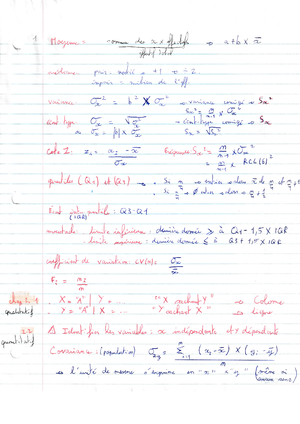 1 Moyenne = somme des x × effectifs / effectif total → a+b × x̄
médiane : pair : médié + +1 ÷ 2.
impair = milieu de l'eff.
variance σx² = b² × σx² → variance corrigé → Sx²
Sx² = n/n-1 × σx²
écart type σx = √σx² → écart-type corrigé → Sx
σx = |b| × σx Sx = √Sx²
Cote Z : zi = xi - x̄ / σx Fréquence Sx² = n/n-1 × σx²
quartiles (Q1) et (Q3)
Écart interquartile : Q3-Q1
(IQR)
moustache : limite inférieure : dernière donnée ≥ à Q1 - 1,5 × IQR
limite supérieure : dernière donnée ≤ à Q3 + 1,5 × IQR
coefficient de variation : CV(x) = σx / x̄
fi = ni / n
chap 2.1 . X = "A" | Y = ... "X sachant Y" → Colonne
qualitatif . Y = "A" | X = ... "Y sachant X" → ligne
2.2
quantitatif
△ Identifier les variables : x indépendante et Y dépendante
Covariance : (population) σxy = Σ (xi - x̄) × (yi - ȳ) / n
→ l'unité de mesure s'exprime en "x" "y" (même si